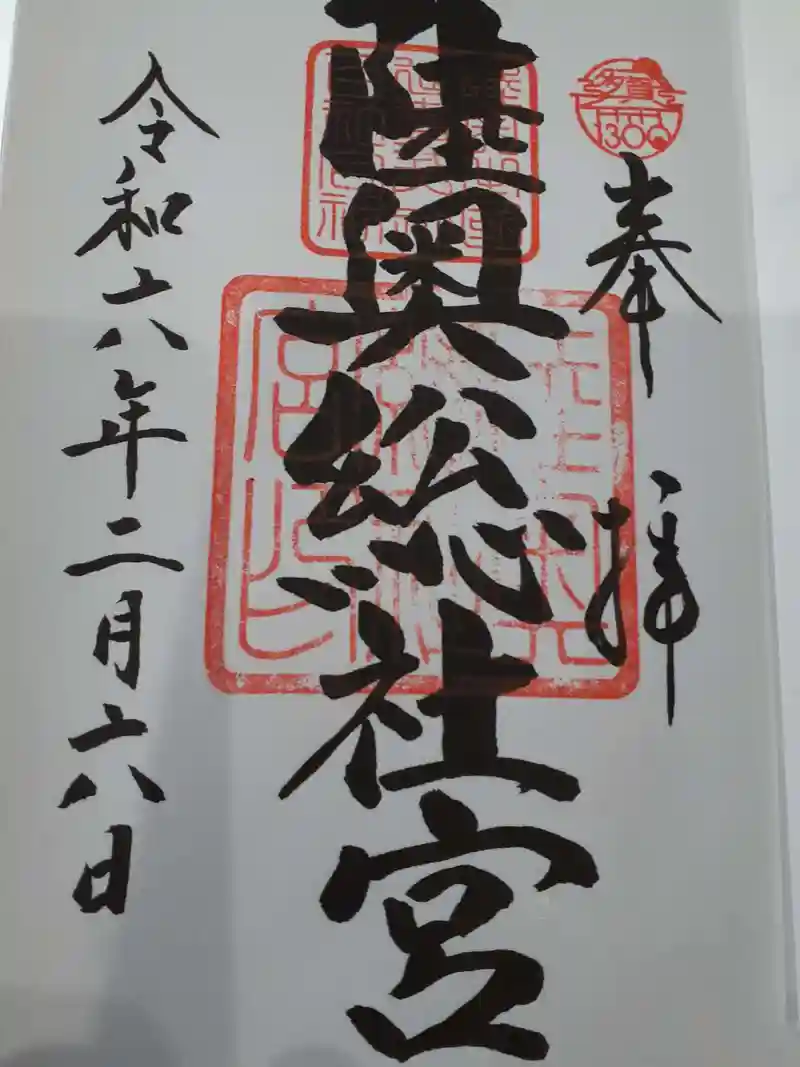 多賀城
1300
奉拝
陸奥総社宮
令和六年二月六日